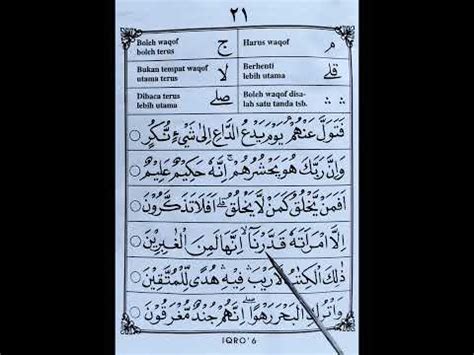 ٢١
Boleh waqof
boleh terus
ج
Harus waqof
م
Bukan tempat waqof
utama terus
لا
Berhenti
lebih utama
قلى
Dibaca terus
lebih utama
صلى
Boleh waqof disa-
lah satu tanda tsb.
ۛ ۛ
فَتَوَلَّ عَنْهُمْ ۘ يَوْمَ يَدْعُ الدَّاعِ اِلٰى شَيْءٍ نُّكُرٍ
وَاِنَّ رَبَّكَ هُوَ يَحْشُرُهُمْ ۚ اِنَّهٗ حَكِيْمٌ عَلِيْمٌ
اَفَمَنْ يَّخْلُقُ كَمَنْ لَّا يَخْلُقُ ۗ اَفَلَا تَذَكَّرُوْنَ
اِلَّا امْرَاَتَهٗ قَدَّرْنَآ ۙ اِنَّهَا لَمِنَ الْغٰبِرِيْنَ
ذٰلِكَ الْكِتٰبُ لَا رَيْبَ ۛ فِيْهِ ۛ هُدًى لِّلْمُتَّقِيْنَ
وَاتْرُكِ الْبَحْرَ رَهْوًا ۖ اِنَّهُمْ جُنْدٌ مُّغْرَقُوْنَ
IQRO' 6